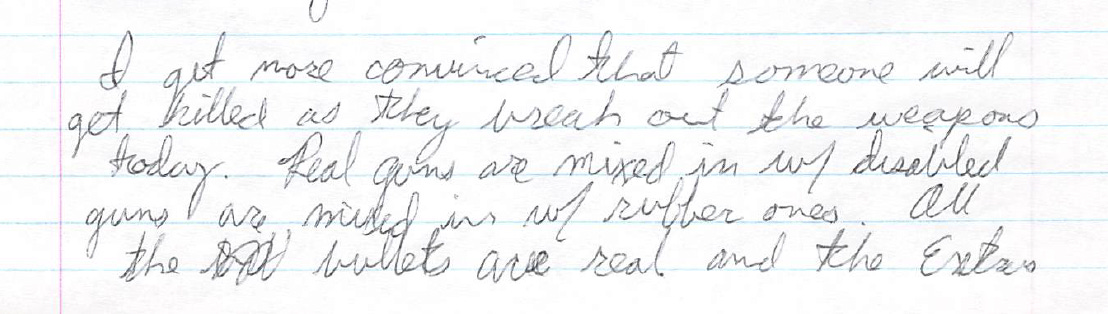 I get more convinced that someone will
get killed as they break out the weapons
today. Real guns are mixed in w/ disabled
guns are mixed in w/ rubber ones. All
the bullets are real and the Extras